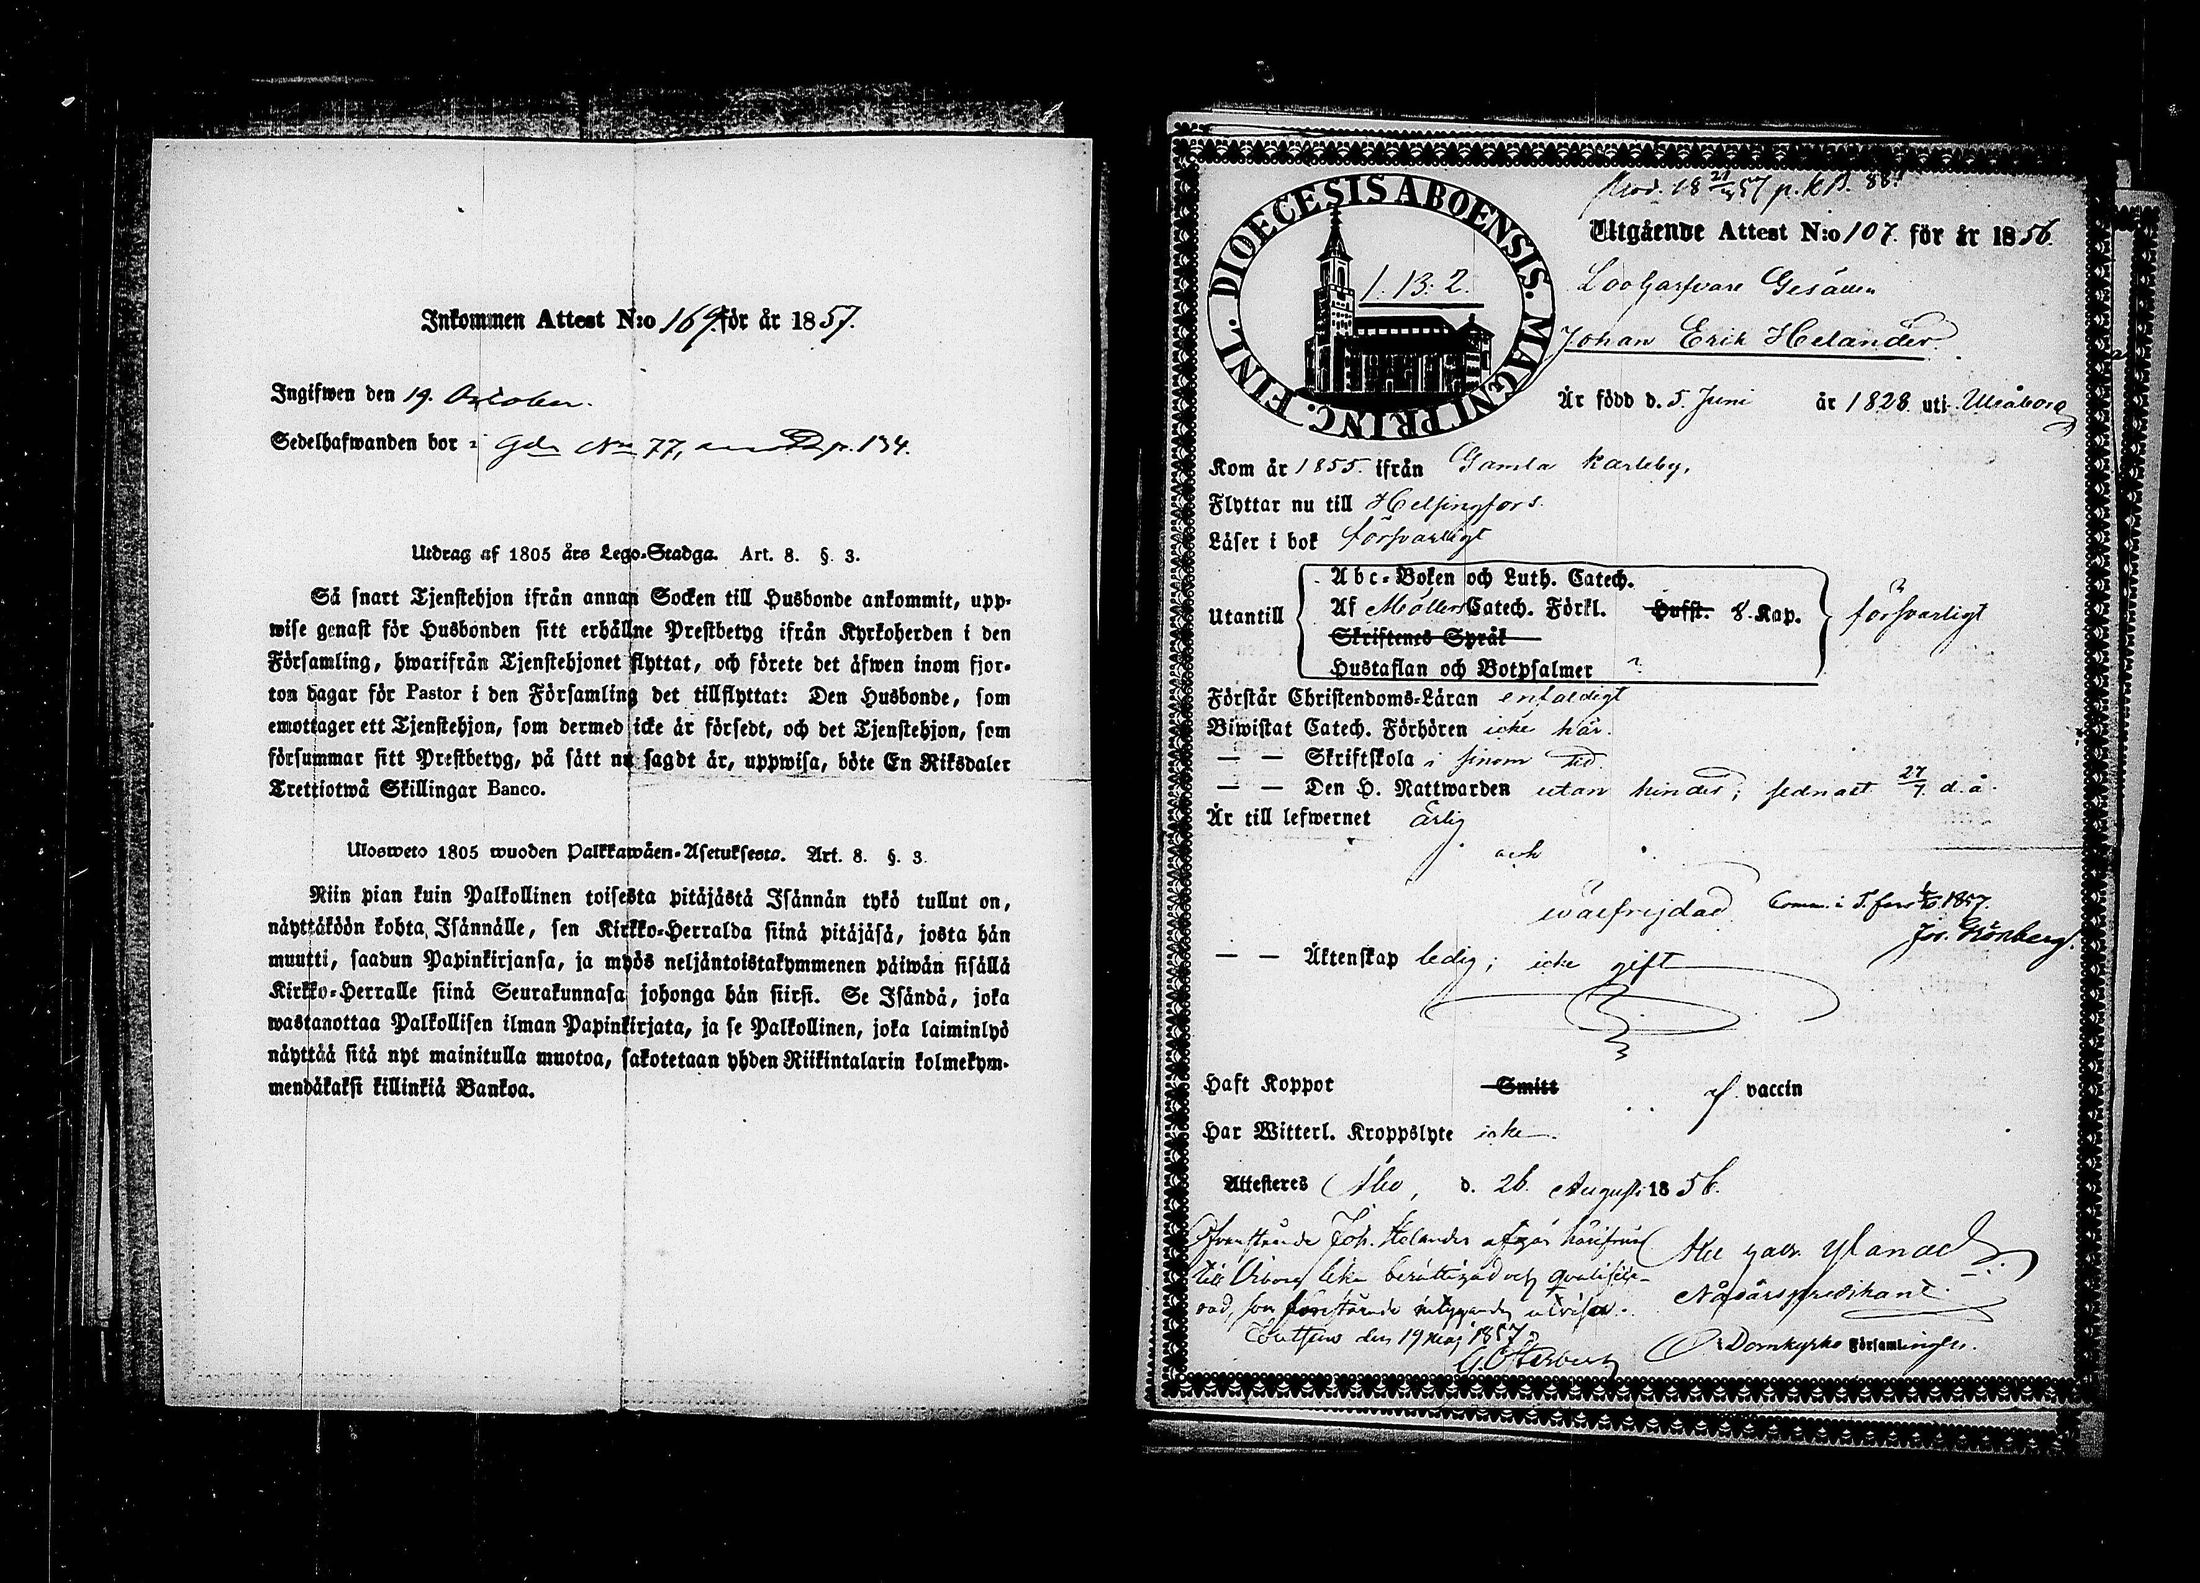 Inkommen Attest N:o 169 för år 1857.
Ingifwen den 19. October.
Sedelhafwanden bor i Gdn No 77, p. 134.
Utdrag af 1805 års Lego-Stadga. Art. 8. §. 3.
Så snart Tjenstehjon ifrån annan Socken till Husbonde ankommit, upp-
wise genast för Husbonden sitt erhållne Prestbetyg ifrån Kyrkoherden i den
Församling, hwarifrån Tjenstehjonet flyttat, och förete det äfwen inom fjor-
ton dagar för Pastor i den Församling det tillflyttat: Den Husbonde, som
emottager ett Tjenstehjon, som dermed icke är försedt, och det Tjenstehjon, som
försummar sitt Prestbetyg, på sätt nu sagdt är, uppwisa, böte En Riksdaler
Trettiotwå Skillingar Banco.
Ulosweto 1805 wuoden Palkkawäen-Asetuksesta. Art. 8. §. 3.
Niin pian kuin Palkollinen toisesta pitäjästä Isännän tykö tullut on,
näyttäköön kohta Isännälle, sen Kirkko-Herralda siinä pitäjäsä, josta hän
muutti, saadun Papinkirjansa, ja myös neljäntoistakymmenen päiwän sisällä
Kirkko-Herralle siinä Seurakunnasa johonga hän siirsi. Se Isändä, joka
wastanottaa Palkollisen ilman Papinkirjata, ja se Palkollinen, joka laiminlyö
näyttää sitä nyt mainitulla muotoa, sakotetaan yhden Riikintalarin kolmekym-
mendäkaksi killinkiä Bankoa.
DIOECESIS ABOENSIS. MAGNI PRINC. FINL.
1. 13. 2.
p. KB. 88.
Utgående Attest N:o 107. för år 1856.
Lootgarfvare Gesällen
Johan Erik Helander
Är född d. 5. Juni år 1828. uti Uleåborg
Kom år 1855. ifrån Gamla Karleby.
Flyttar nu till Helsingfors.
Läser i bok försvarligt
Utantill
Abc-Boken och Luth. Catech.
Af Möllers Catech. Förkl. Hufst. 8. Kap.
Skriftenes Språk
Hustaflan och Botpsalmer ?
försvarligt
Förstår Christendoms-Läran enfaldigt
Biwistat Catech. Förhören icke här.
— — Skriftskola i sinom tid.
— — Den H. Nattwarden utan hinder; sednast 27/7. d. å.
Är till lefwernet Ärlig
och
wälfrejdad. Comm. i 1857.
Joh. Grönberg.
— — Äktenskap ledig; icke gift
Haft Koppor Smitt af vaccin
Har Witterl. Kroppslyte icke.
Attesteres Åbo, d. 26. Augusti 1856.
Ofvanstående Joh. Helander afgår härifrån
till Wiborg lika berättigad och qvalifice-
rad, som förestående intyg utvisar.
den 19 maj 1857.
G. Österberg
Ylander
Nådårspredikant.
Domkyrko Församlingen.